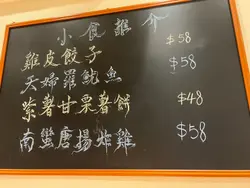 小食推介
雞皮餃子 $58
天婦羅魷魚 $58
紫薯甘栗薯餅 $48
南蠻唐揚炸雞 $58